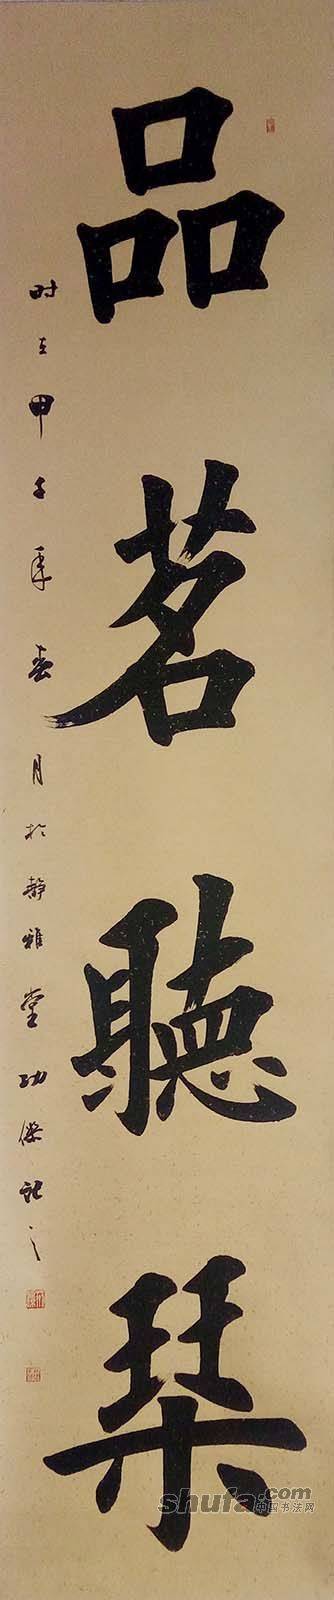 品茗聽琹
时在甲子年春月於静雅堂功傑记之
shufa.com
中国书法网